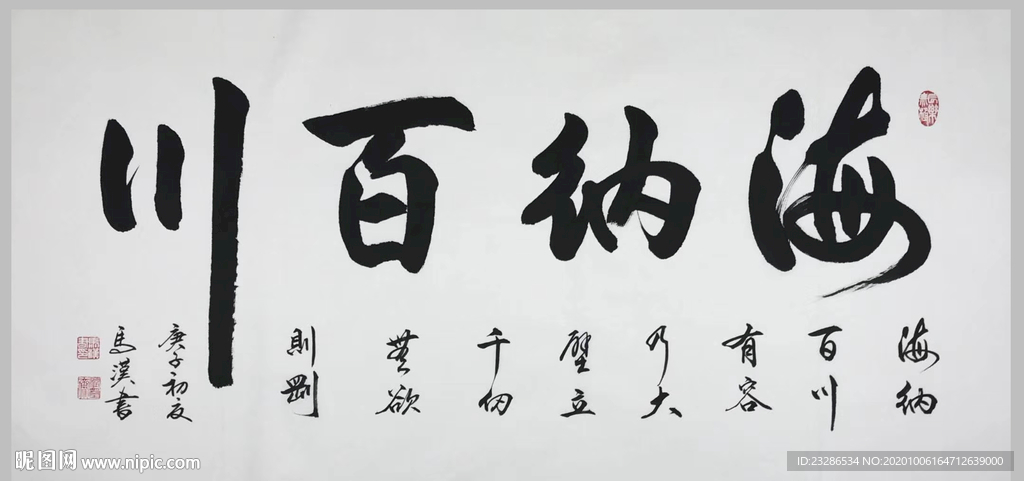 海納百川
海納
百川
有容
乃大
壁立
千仞
無欲
則剛
庚子初夏
馬漢書
昵图网 www.nipic.com
ID:23286534 NO:20201006164712639000